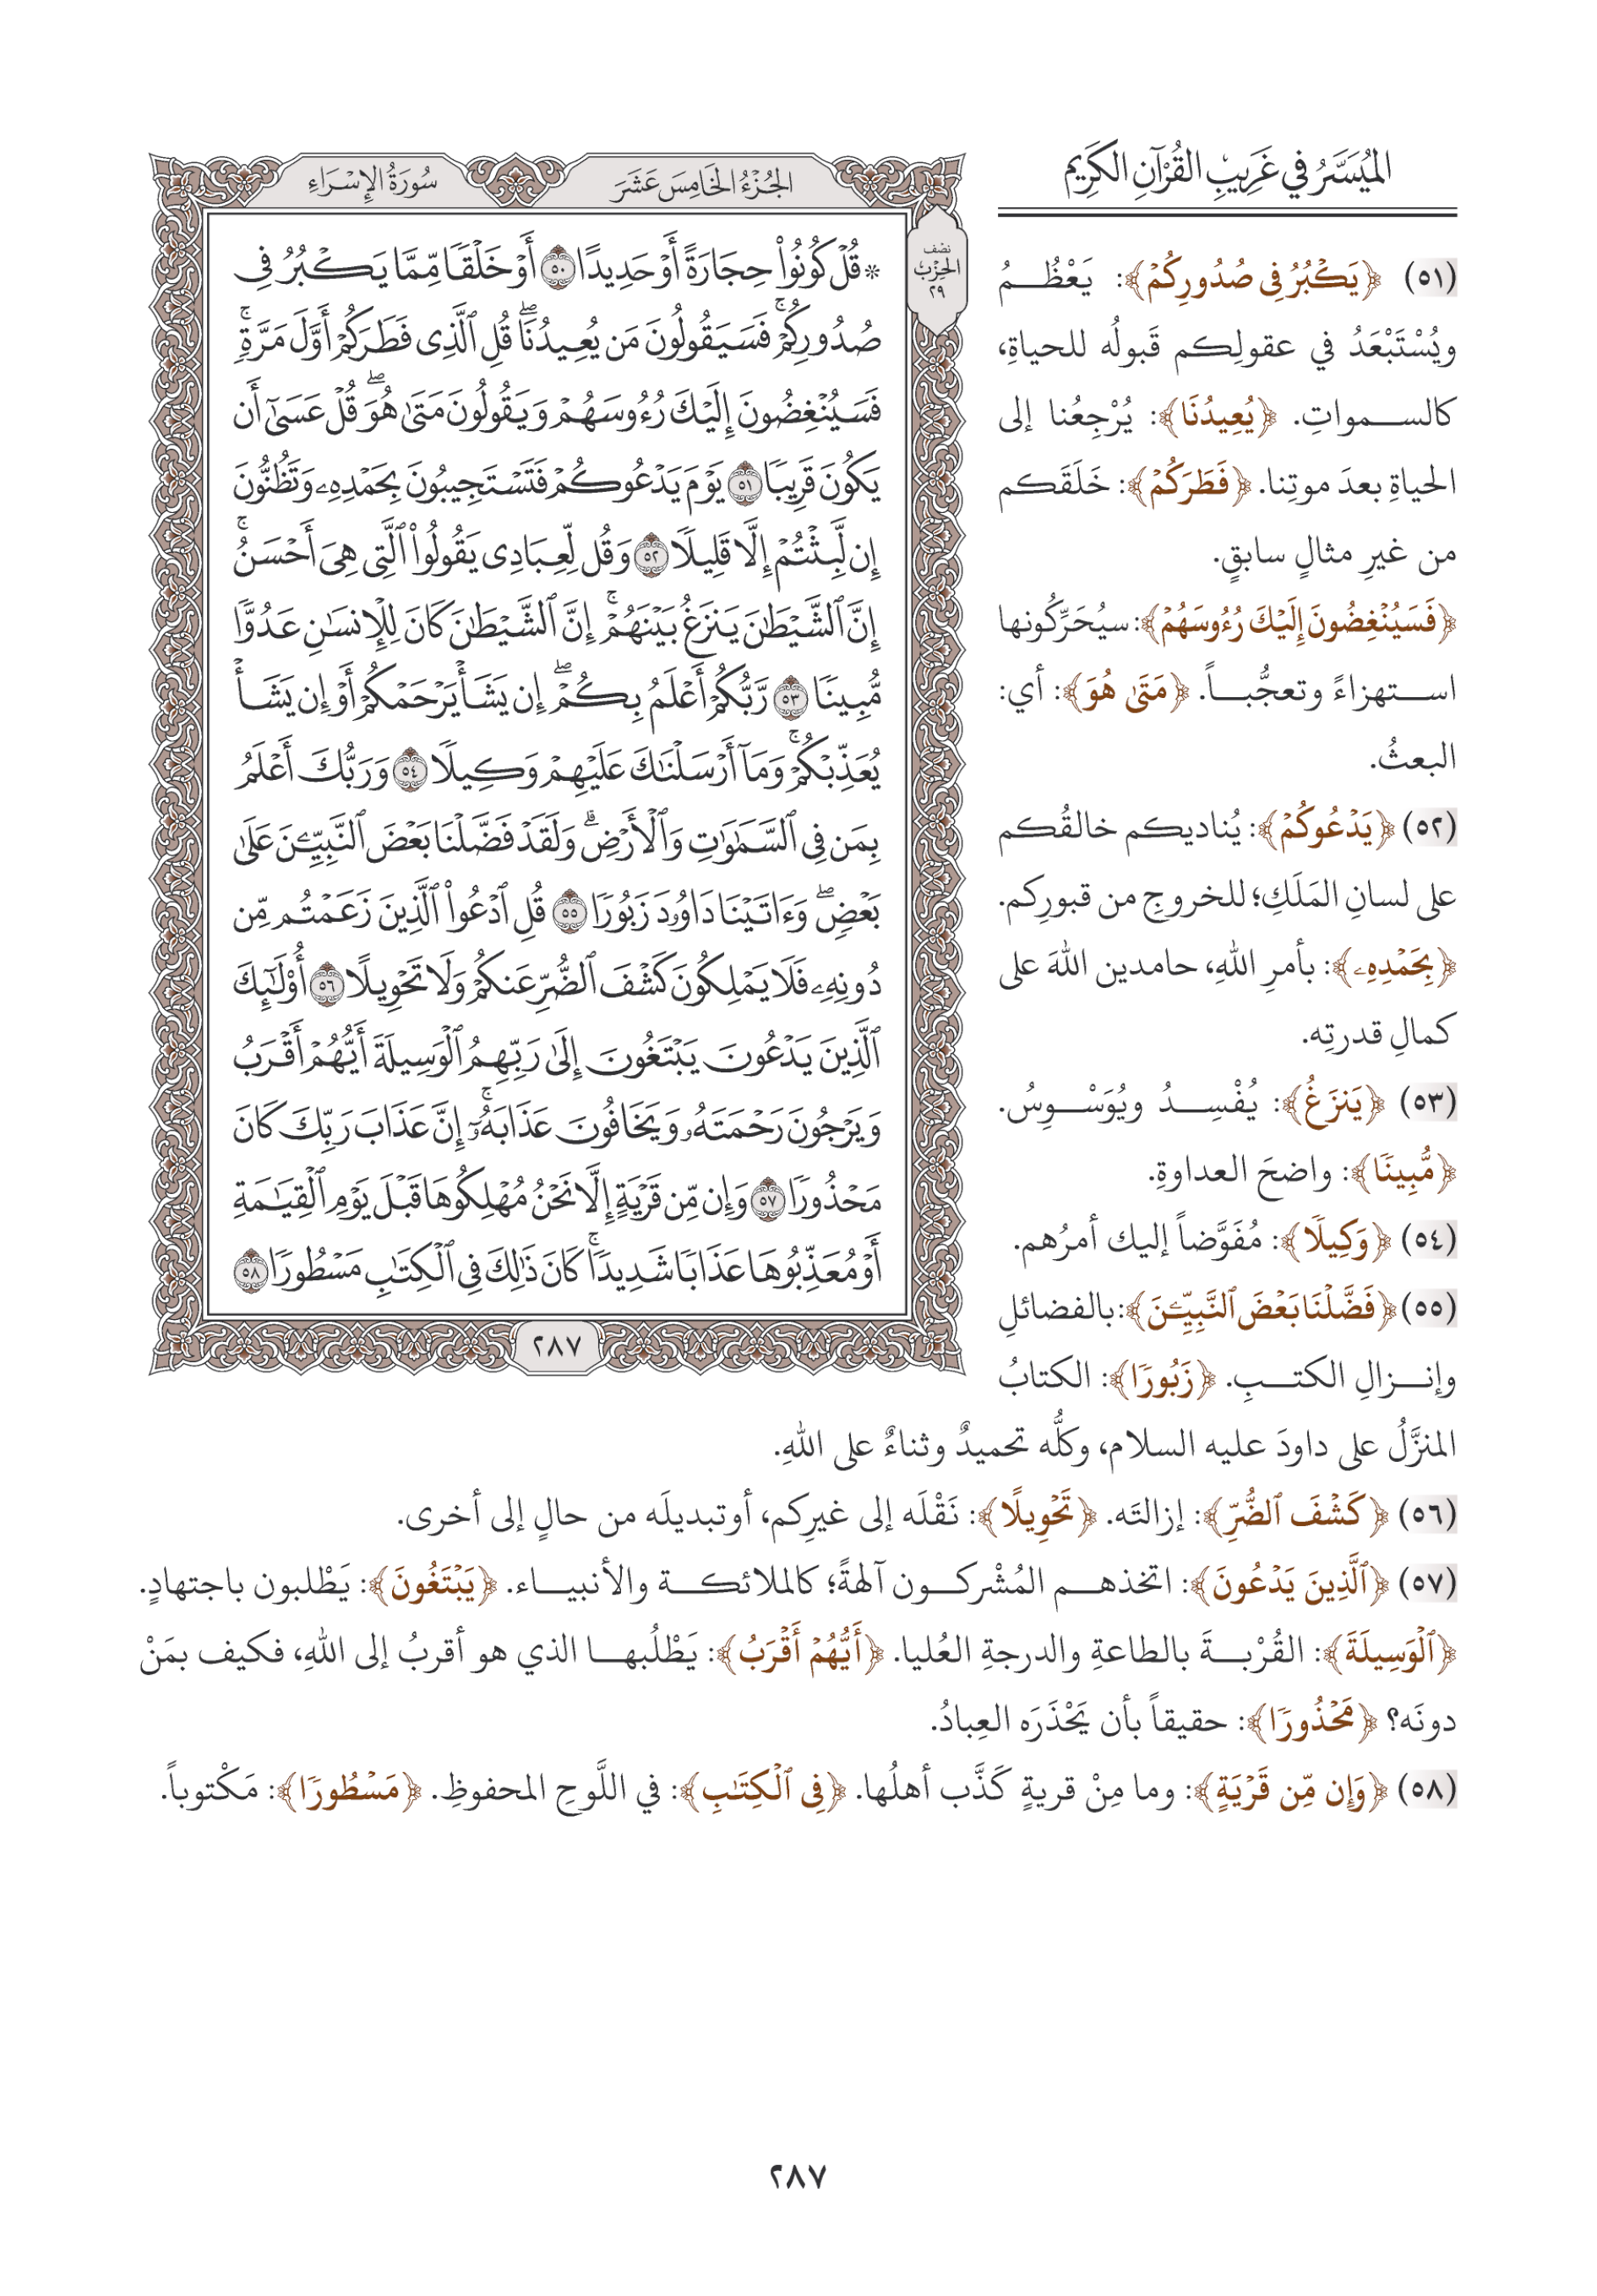 الميسر في غريب القرآن الكريم
الجزء الخامس عشر
سورة الإسراء
نصف
الحزب
٢٩
* قُلۡ كُونُواْ حِجَارَةً أَوۡ حَدِيدًا ٥٠ أَوۡ خَلۡقٗا مِّمَّا يَكۡبُرُ فِي
صُدُورِكُمۡۚ فَسَيَقُولُونَ مَن يُعِيدُنَاۖ قُلِ ٱلَّذِي فَطَرَكُمۡ أَوَّلَ مَرَّةٖۚ
فَسَيُنۡغِضُونَ إِلَيۡكَ رُءُوسَهُمۡ وَيَقُولُونَ مَتَىٰ هُوَۖ قُلۡ عَسَىٰٓ أَن
يَكُونَ قَرِيبٗا ٥١ يَوۡمَ يَدۡعُوكُمۡ فَتَسۡتَجِيبُونَ بِحَمۡدِهِۦ وَتَظُنُّونَ
إِن لَّبِثۡتُمۡ إِلَّا قَلِيلٗا ٥٢ وَقُل لِّعِبَادِي يَقُولُواْ ٱلَّتِي هِيَ أَحۡسَنُۚ
إِنَّ ٱلشَّيۡطَٰنَ يَنزَغُ بَيۡنَهُمۡۚ إِنَّ ٱلشَّيۡطَٰنَ كَانَ لِلۡإِنسَٰنِ عَدُوّٗا
مُّبِينٗا ٥٣ رَّبُّكُمۡ أَعۡلَمُ بِكُمۡۖ إِن يَشَأۡ يَرۡحَمۡكُمۡ أَوۡ إِن يَشَأۡ
يُعَذِّبۡكُمۡۚ وَمَآ أَرۡسَلۡنَٰكَ عَلَيۡهِمۡ وَكِيلٗا ٥٤ وَرَبُّكَ أَعۡلَمُ
بِمَن فِي ٱلسَّمَٰوَٰتِ وَٱلۡأَرۡضِۗ وَلَقَدۡ فَضَّلۡنَا بَعۡضَ ٱلنَّبِيِّـۧنَ عَلَىٰ
بَعۡضٖۖ وَءَاتَيۡنَا دَاوُۥدَ زَبُورٗا ٥٥ قُلِ ٱدۡعُواْ ٱلَّذِينَ زَعَمۡتُم مِّن
دُونِهِۦ فَلَا يَمۡلِكُونَ كَشۡفَ ٱلضُّرِّ عَنكُمۡ وَلَا تَحۡوِيلًا ٥٦ أُوْلَٰٓئِكَ
ٱلَّذِينَ يَدۡعُونَ يَبۡتَغُونَ إِلَىٰ رَبِّهِمُ ٱلۡوَسِيلَةَ أَيُّهُمۡ أَقۡرَبُ
وَيَرۡجُونَ رَحۡمَتَهُۥ وَيَخَافُونَ عَذَابَهُۥٓۚ إِنَّ عَذَابَ رَبِّكَ كَانَ
مَحۡذُورٗا ٥٧ وَإِن مِّن قَرۡيَةٍ إِلَّا نَحۡنُ مُهۡلِكُوهَا قَبۡلَ يَوۡمِ ٱلۡقِيَٰمَةِ
أَوۡ مُعَذِّبُوهَا عَذَابٗا شَدِيدٗاۚ كَانَ ذَٰلِكَ فِي ٱلۡكِتَٰبِ مَسۡطُورٗا ٥٨
٢٨٧
(٥١) ﴿يَكۡبُرُ فِي صُدُورِكُمۡ﴾: يَعْظُمُ
ويُسْتَبْعَدُ في عقولِكم قَبولُه للحياةِ،
كالسمواتِ. ﴿يُعِيدُنَا﴾: يُرْجِعُنا إلى
الحياةِ بعدَ موتِنا. ﴿فَطَرَكُمۡ﴾: خَلَقَكم
من غيرِ مثالٍ سابقٍ.
﴿فَسَيُنۡغِضُونَ إِلَيۡكَ رُءُوسَهُمۡ﴾: سيُحَرِّكُونها
استهزاءً وتعجُّباً. ﴿مَتَىٰ هُوَ﴾: أي:
البعثُ.
(٥٢) ﴿يَدۡعُوكُمۡ﴾: يُناديكم خالقُكم
على لسانِ المَلَكِ؛ للخروجِ من قبورِكم.
﴿بِحَمۡدِهِۦ﴾: بأمرِ اللهِ، حامدين اللهَ على
كمالِ قدرتِه.
(٥٣) ﴿يَنزَغُ﴾: يُفْسِدُ ويُوَسْوِسُ.
﴿مُّبِينٗا﴾: واضحَ العداوةِ.
(٥٤) ﴿وَكِيلٗا﴾: مُفَوَّضاً إليك أمرُهم.
(٥٥) ﴿فَضَّلۡنَا بَعۡضَ ٱلنَّبِيِّـۧنَ﴾: بالفضائلِ
وإنزالِ الكتبِ. ﴿زَبُورٗا﴾: الكتابُ
المنزَّلُ على داودَ عليه السلام، وكلُّه تحميدٌ وثناءٌ على اللهِ.
(٥٦) ﴿كَشۡفَ ٱلضُّرِّ﴾: إزالتَه. ﴿تَحۡوِيلًا﴾: نَقْلَه إلى غيرِكم، أوتبديلَه من حالٍ إلى أخرى.
(٥٧) ﴿ٱلَّذِينَ يَدۡعُونَ﴾: اتخذهم المُشْركون آلهةً؛ كالملائكة والأنبياء. ﴿يَبۡتَغُونَ﴾: يَطْلبون باجتهادٍ.
﴿ٱلۡوَسِيلَةَ﴾: القُرْبةَ بالطاعةِ والدرجةِ العُليا. ﴿أَيُّهُمۡ أَقۡرَبُ﴾: يَطْلُبها الذي هو أقربُ إلى اللهِ، فكيف بمَنْ
دونَه؟ ﴿مَحۡذُورٗا﴾: حقيقاً بأن يَحْذَرَه العِبادُ.
(٥٨) ﴿وَإِن مِّن قَرۡيَةٍ﴾: وما مِنْ قريةٍ كَذَّب أهلُها. ﴿فِي ٱلۡكِتَٰبِ﴾: في اللَّوحِ المحفوظِ. ﴿مَسۡطُورٗا﴾: مَكْتوباً.
٢٨٧